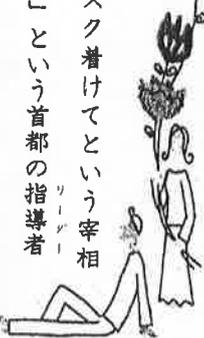 スク着けてという宰相
」という首都の指導者
リーダー